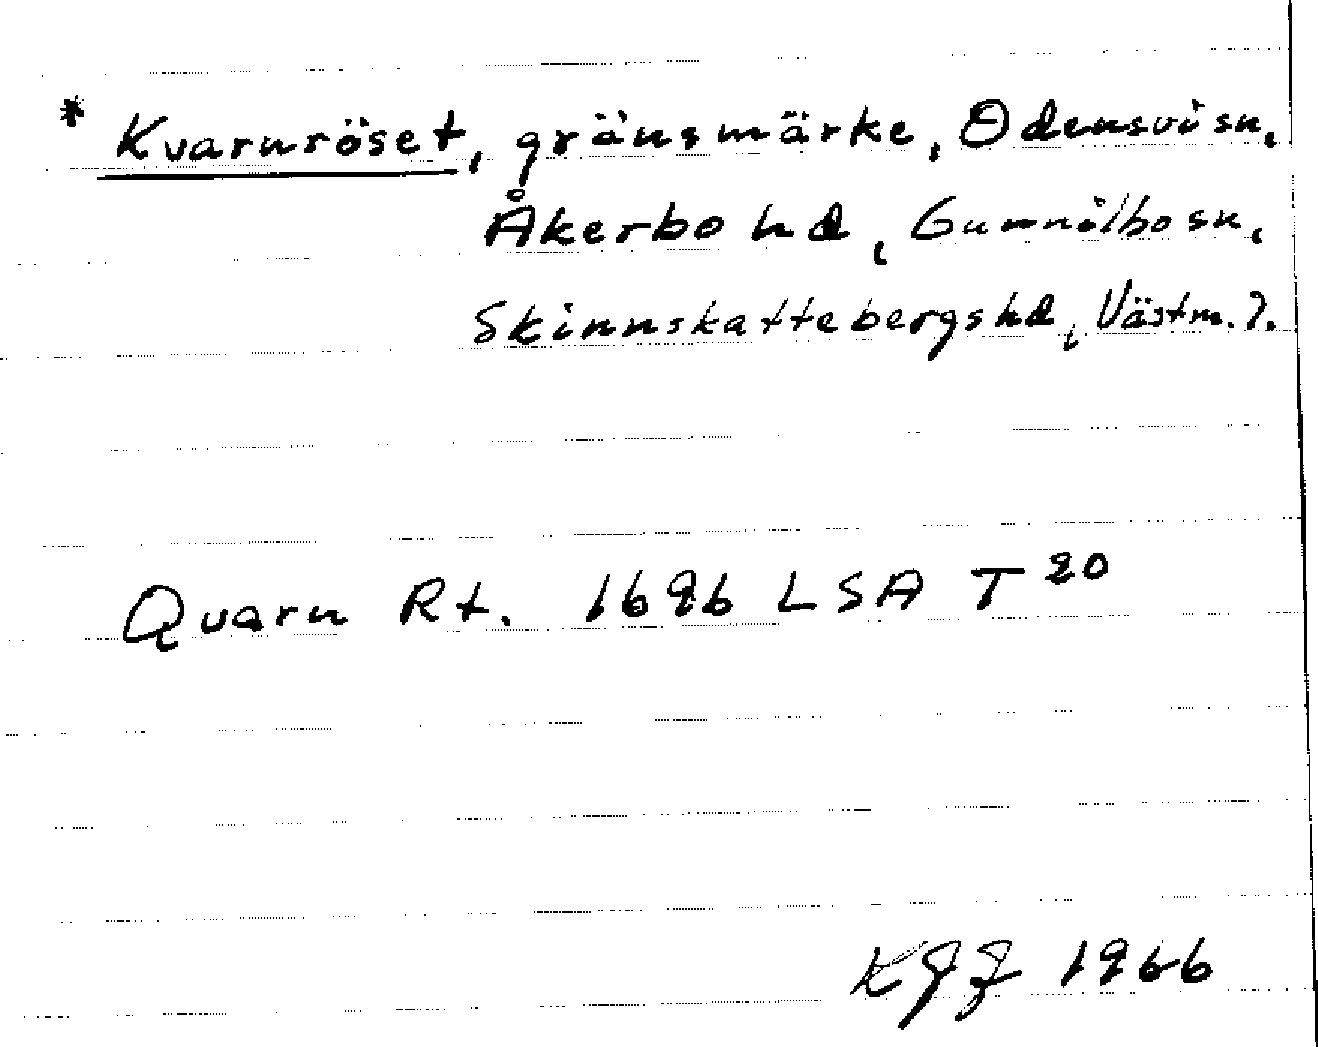 * Kvarnröset, gränsmärke, Odensvi sn,
Åkerbo hd, Gunnilbo sn,
Skinnskattebergs hd, Västm. l.
Quarn Rt. 1696 LSA T 20
1966